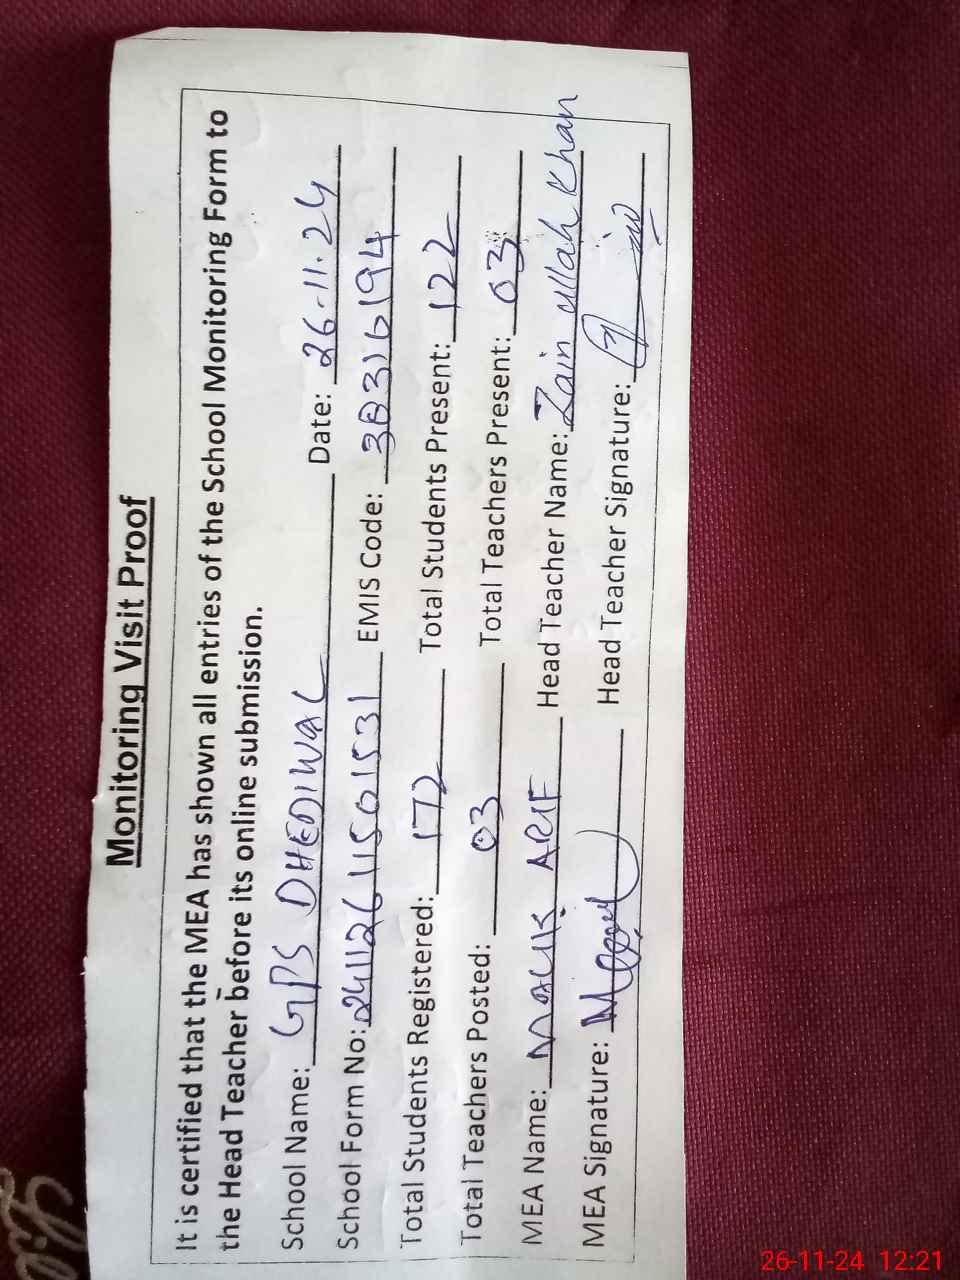 Monitoring Visit Proof
It is certified that the MEA has shown all entries of the School Monitoring Form to
the Head Teacher before its online submission.
School Name: GPS DHEDIWAL Date: 26-11-24
School Form No: 24112611501531 EMIS Code: 38316194
Total Students Registered: 172 Total Students Present: 122
Total Teachers Posted: 03 Total Teachers Present: 03
MEA Name: MALIK ARIF Head Teacher Name: Zain ullah Khan
MEA Signature: Head Teacher Signature:
26-11-24 12:21